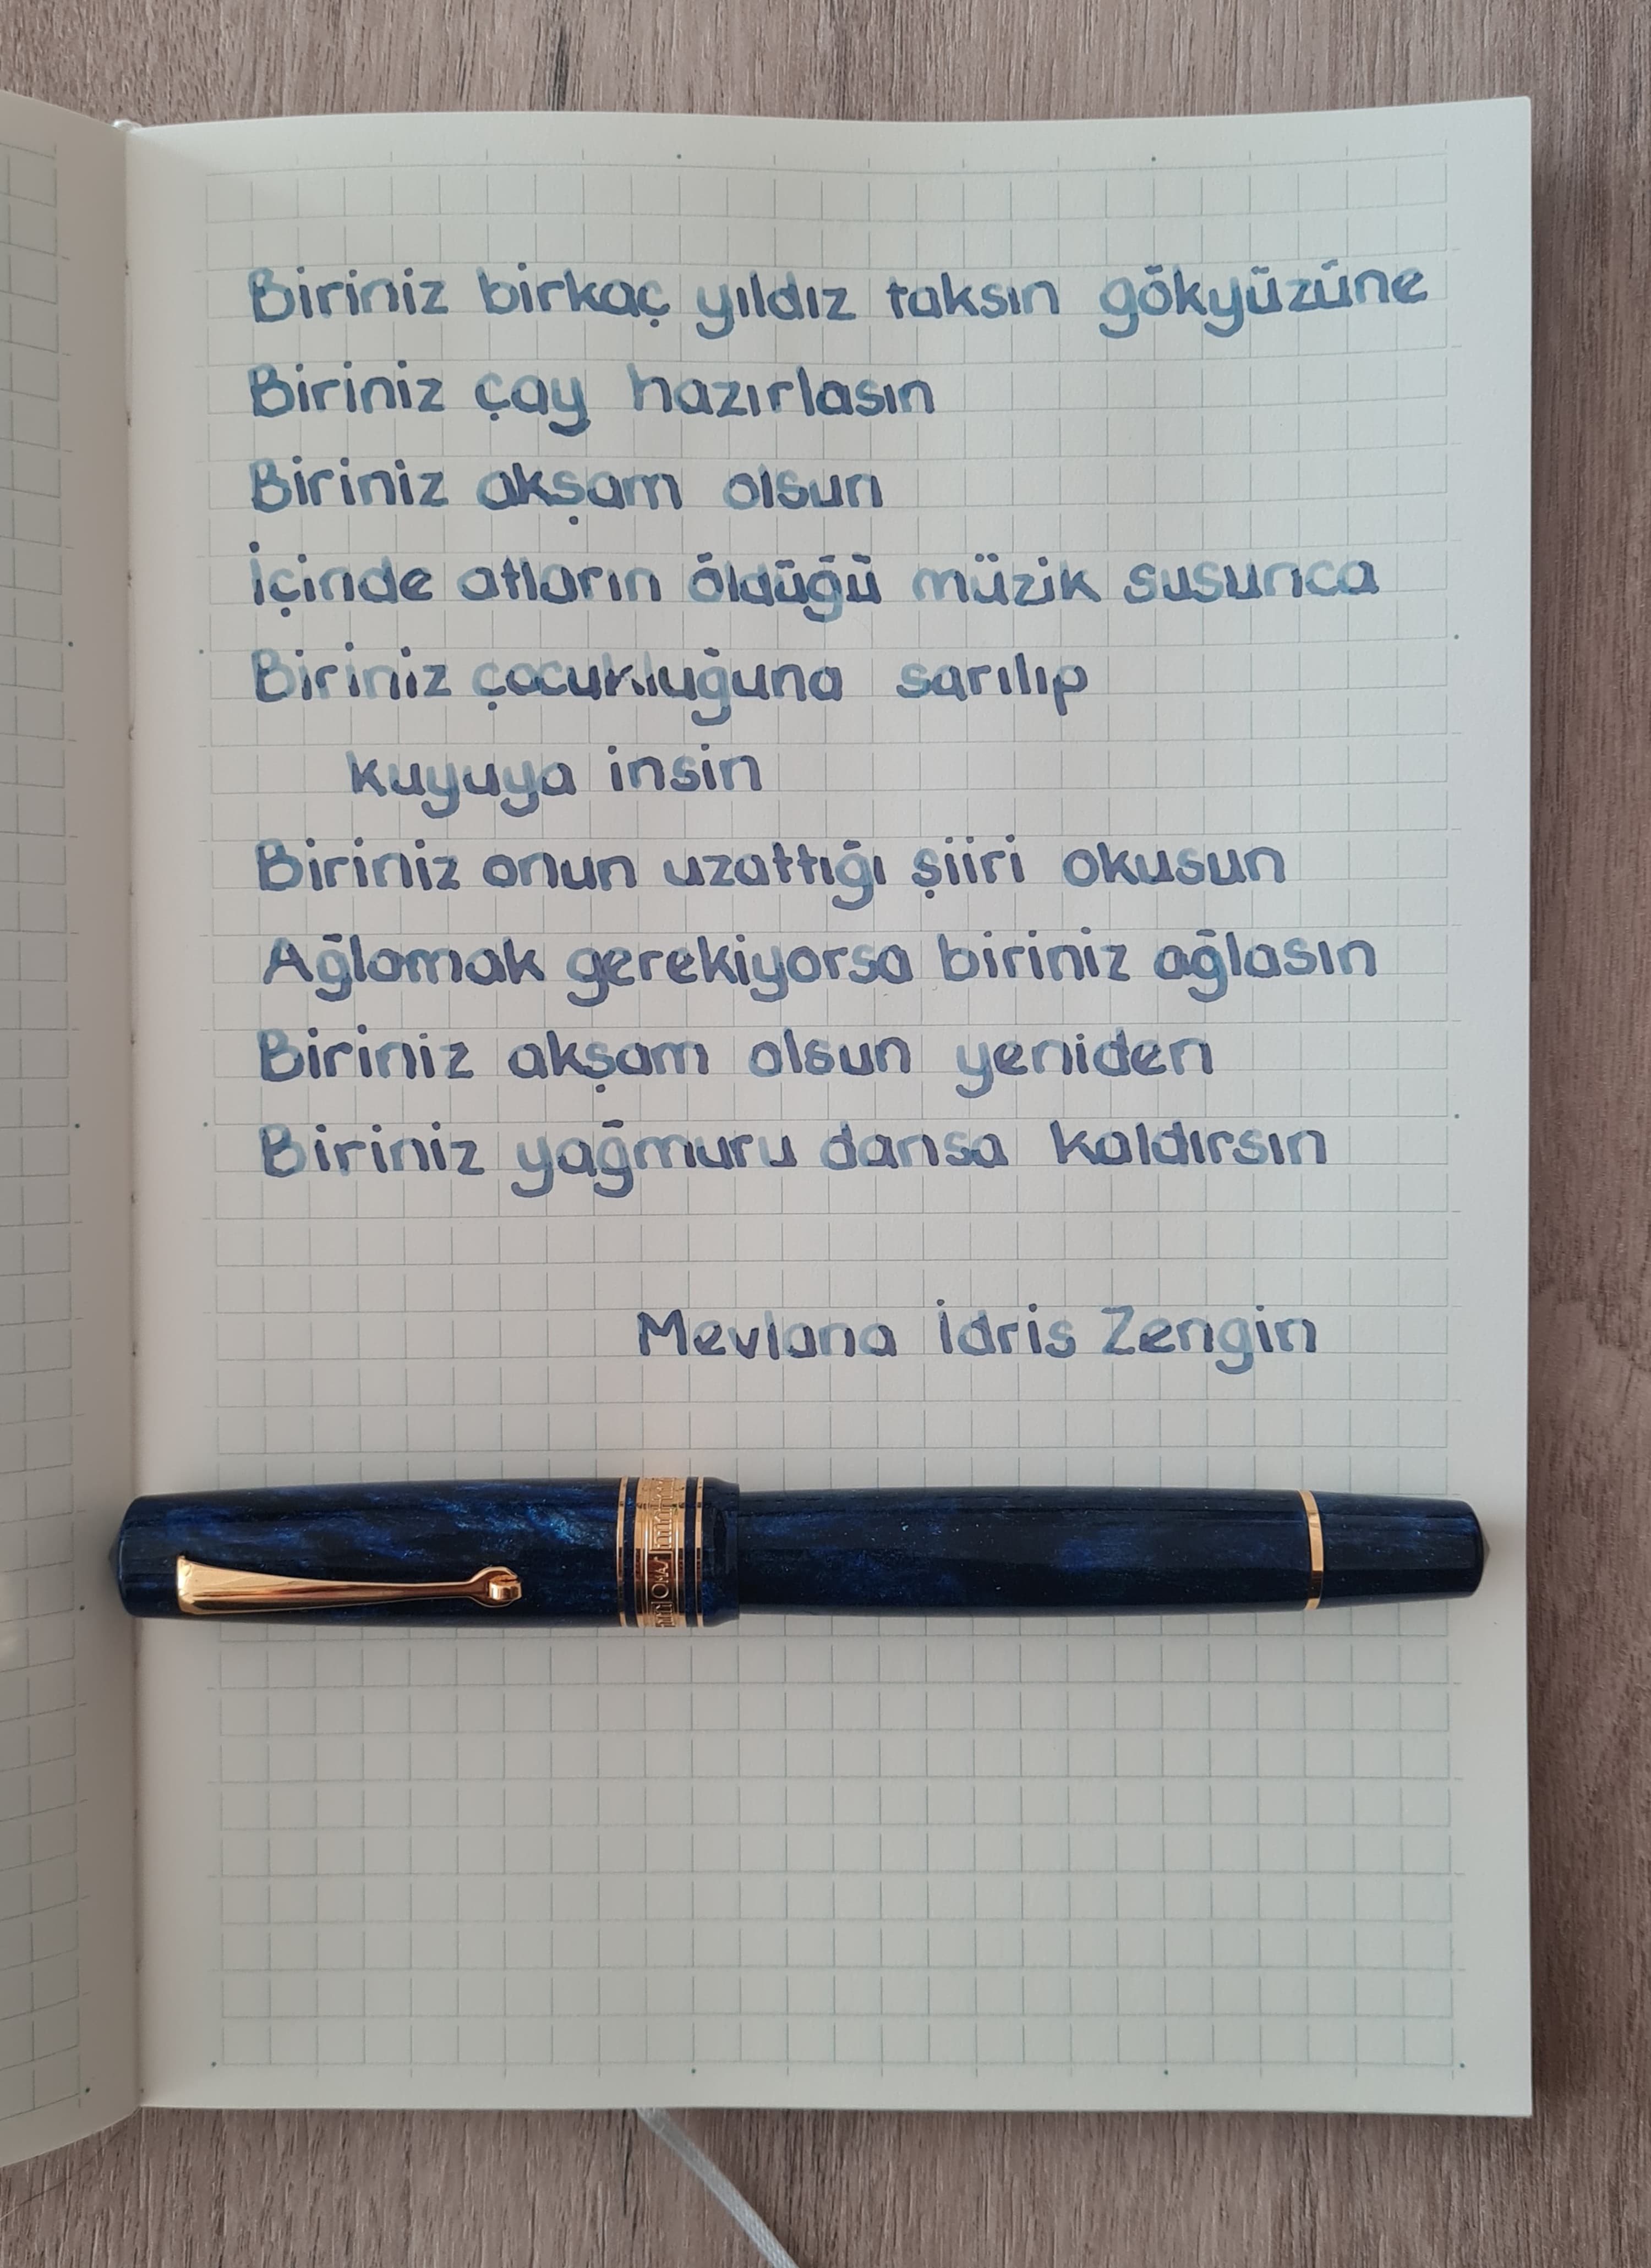 Biriniz birkaç yıldız taksın gökyüzüne
Biriniz çay hazırlasın
Biriniz akşam olsun
İçinde atların öldüğü müzik susunca
Biriniz çocukluğuna sarılıp
kuyuya insin
Biriniz onun uzattığı şiiri okusun
Ağlamak gerekiyorsa biriniz ağlasın
Biriniz akşam olsun yeniden
Biriniz yağmuru dansa kaldırsın
Mevlana İdris Zengin
OMAS